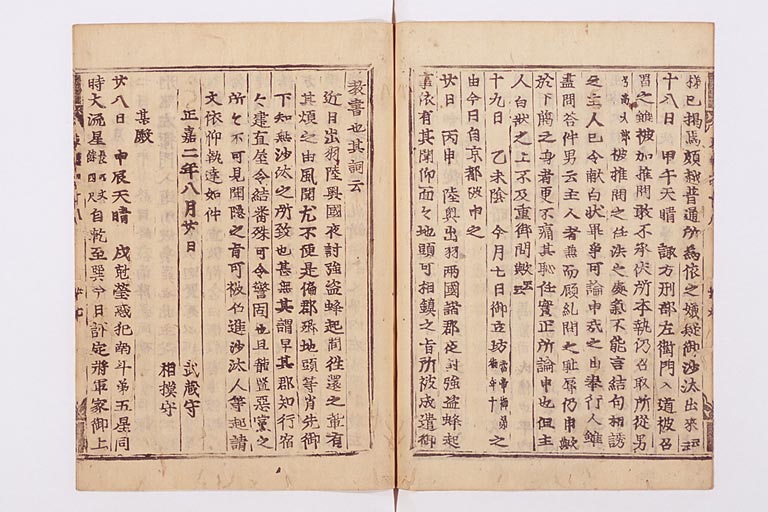 梯已揚焉頗越普通所為依之嫌疑御沙汰出來云云
十八日 甲午天晴 諏方刑部左衛門入道被召
置之雖被加推問敢不承伏所本執仍召取所從男
高太郎 被推問之任法之處氣不能言結句相誘
之主人已令献白状畢争可論申哉之由奉行人雖
盡問答件男云主人者兼而顧糺問之耻辱仍申歟
於下臈之身者更不痛其耻任實正所論申也但主
人白状之上不及重御問歟云云
十九日 乙未陰 今月七日御立坊 當帝御弟 御年十 之
由今日自京都被申之
廿日 丙申 陸奥出羽兩國諸郡夜討強盗蜂起
事依有其聞仰面々地頭可相鎮之旨所被成遣御
教書也其詞云
近日出羽陸奥國夜討強盗蜂起間往還之輩有
其煩之由風聞尤不便是偏郡郷地頭等背先御
下知無沙汰之所致也甚無其謂早其郡知行宿
々建直屋令結番殊可令警固也且籠置惡黨之
所々不可見聞隠之旨可被仍進沙汰人等起請
文依仰執達如件
正嘉二年八月廿日 武藏守
相摸守
某殿
廿八日 甲辰天晴 戌尅熒惑犯南斗第五星同
時大流星 自乾至巽今日評定將軍家御上